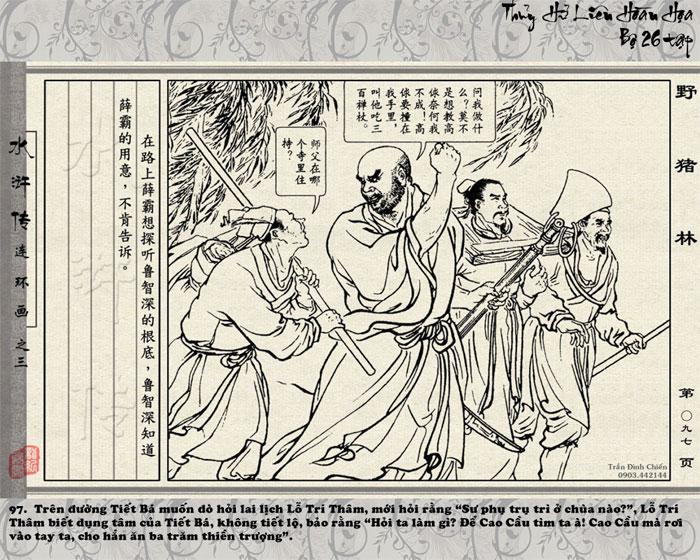 Thủy Hử Liên Hoàn Họa
Bộ 26 tập
野猪林
第〇九七页
问我做什
么?莫不
是想教高
俅奈何我
不成!高
俅要撞在
我手里,
叫他吃三
百禅杖。
师父在哪
个寺里住
持?
在路上薛霸想探听鲁智深的根底,鲁智深知道
薛霸的用意,不肯告诉。
水浒传
水浒传连环画之三
Trần Đình Chiến
0903.442144
97. Trên đường Tiết Bá muốn dò hỏi lai lịch Lỗ Trí Thâm, mới hỏi rằng “Sư phụ trụ trì ở chùa nào?”, Lỗ Trí
Thâm biết dụng tâm của Tiết Bá, không tiết lộ, bảo rằng “Hỏi ta làm gì? Để Cao Cầu tìm ta à! Cao Cầu mà rơi
vào tay ta, cho hắn ăn ba trăm thiền trượng”.